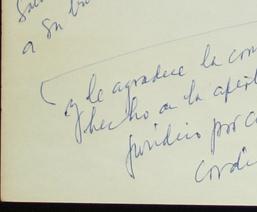 a su
y le agradece la com
hecho en la apert
jurídico por c
Cordi